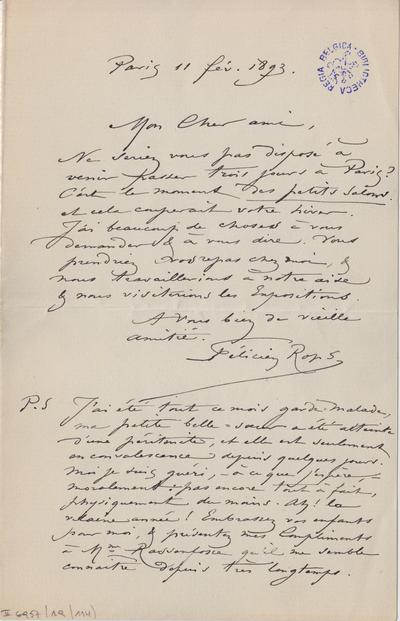 Paris 11 fév. 1893.
REGIA BELGICA BIBLIOTHECA
Mon Cher ami,
Ne seriez vous pas disposé à
venir passer trois jours à Paris?
C'est le moment des petits salons.
et cela couperait votre hiver.
J'ai beaucoup de choses à vous
demander & à vous dire. Vous
prendriez vos repas chez moi, &
nous travaillerions à notre aise
& nous visiterions les Expositions.
A Vous bien de vieille
amitié.
Félicien Rops
P.S J'ai été tout ce mois garde-malade,
ma petite belle-soeur a été atteinte
d'une péritonite, et elle est seulement
en convalescence depuis quelques jours.
Moi je suis guéri, – à ce que j'espère –
moralement: pas encore tout à fait,
physiquement du moins. Ah! la
vilaine année! Embrassez vos enfants
pour moi, & présentez mes Compliments
à Mme Rassenfosse qu'il me semble
connaître depuis très longtemps.
II 6957/19/114)